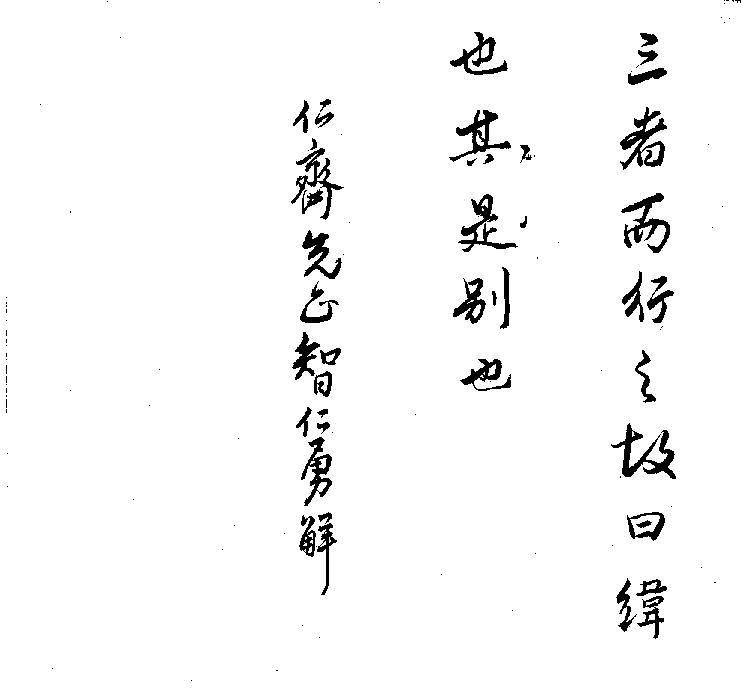 三者而行之故曰緯
也其是別也
仁齋先生智仁勇解